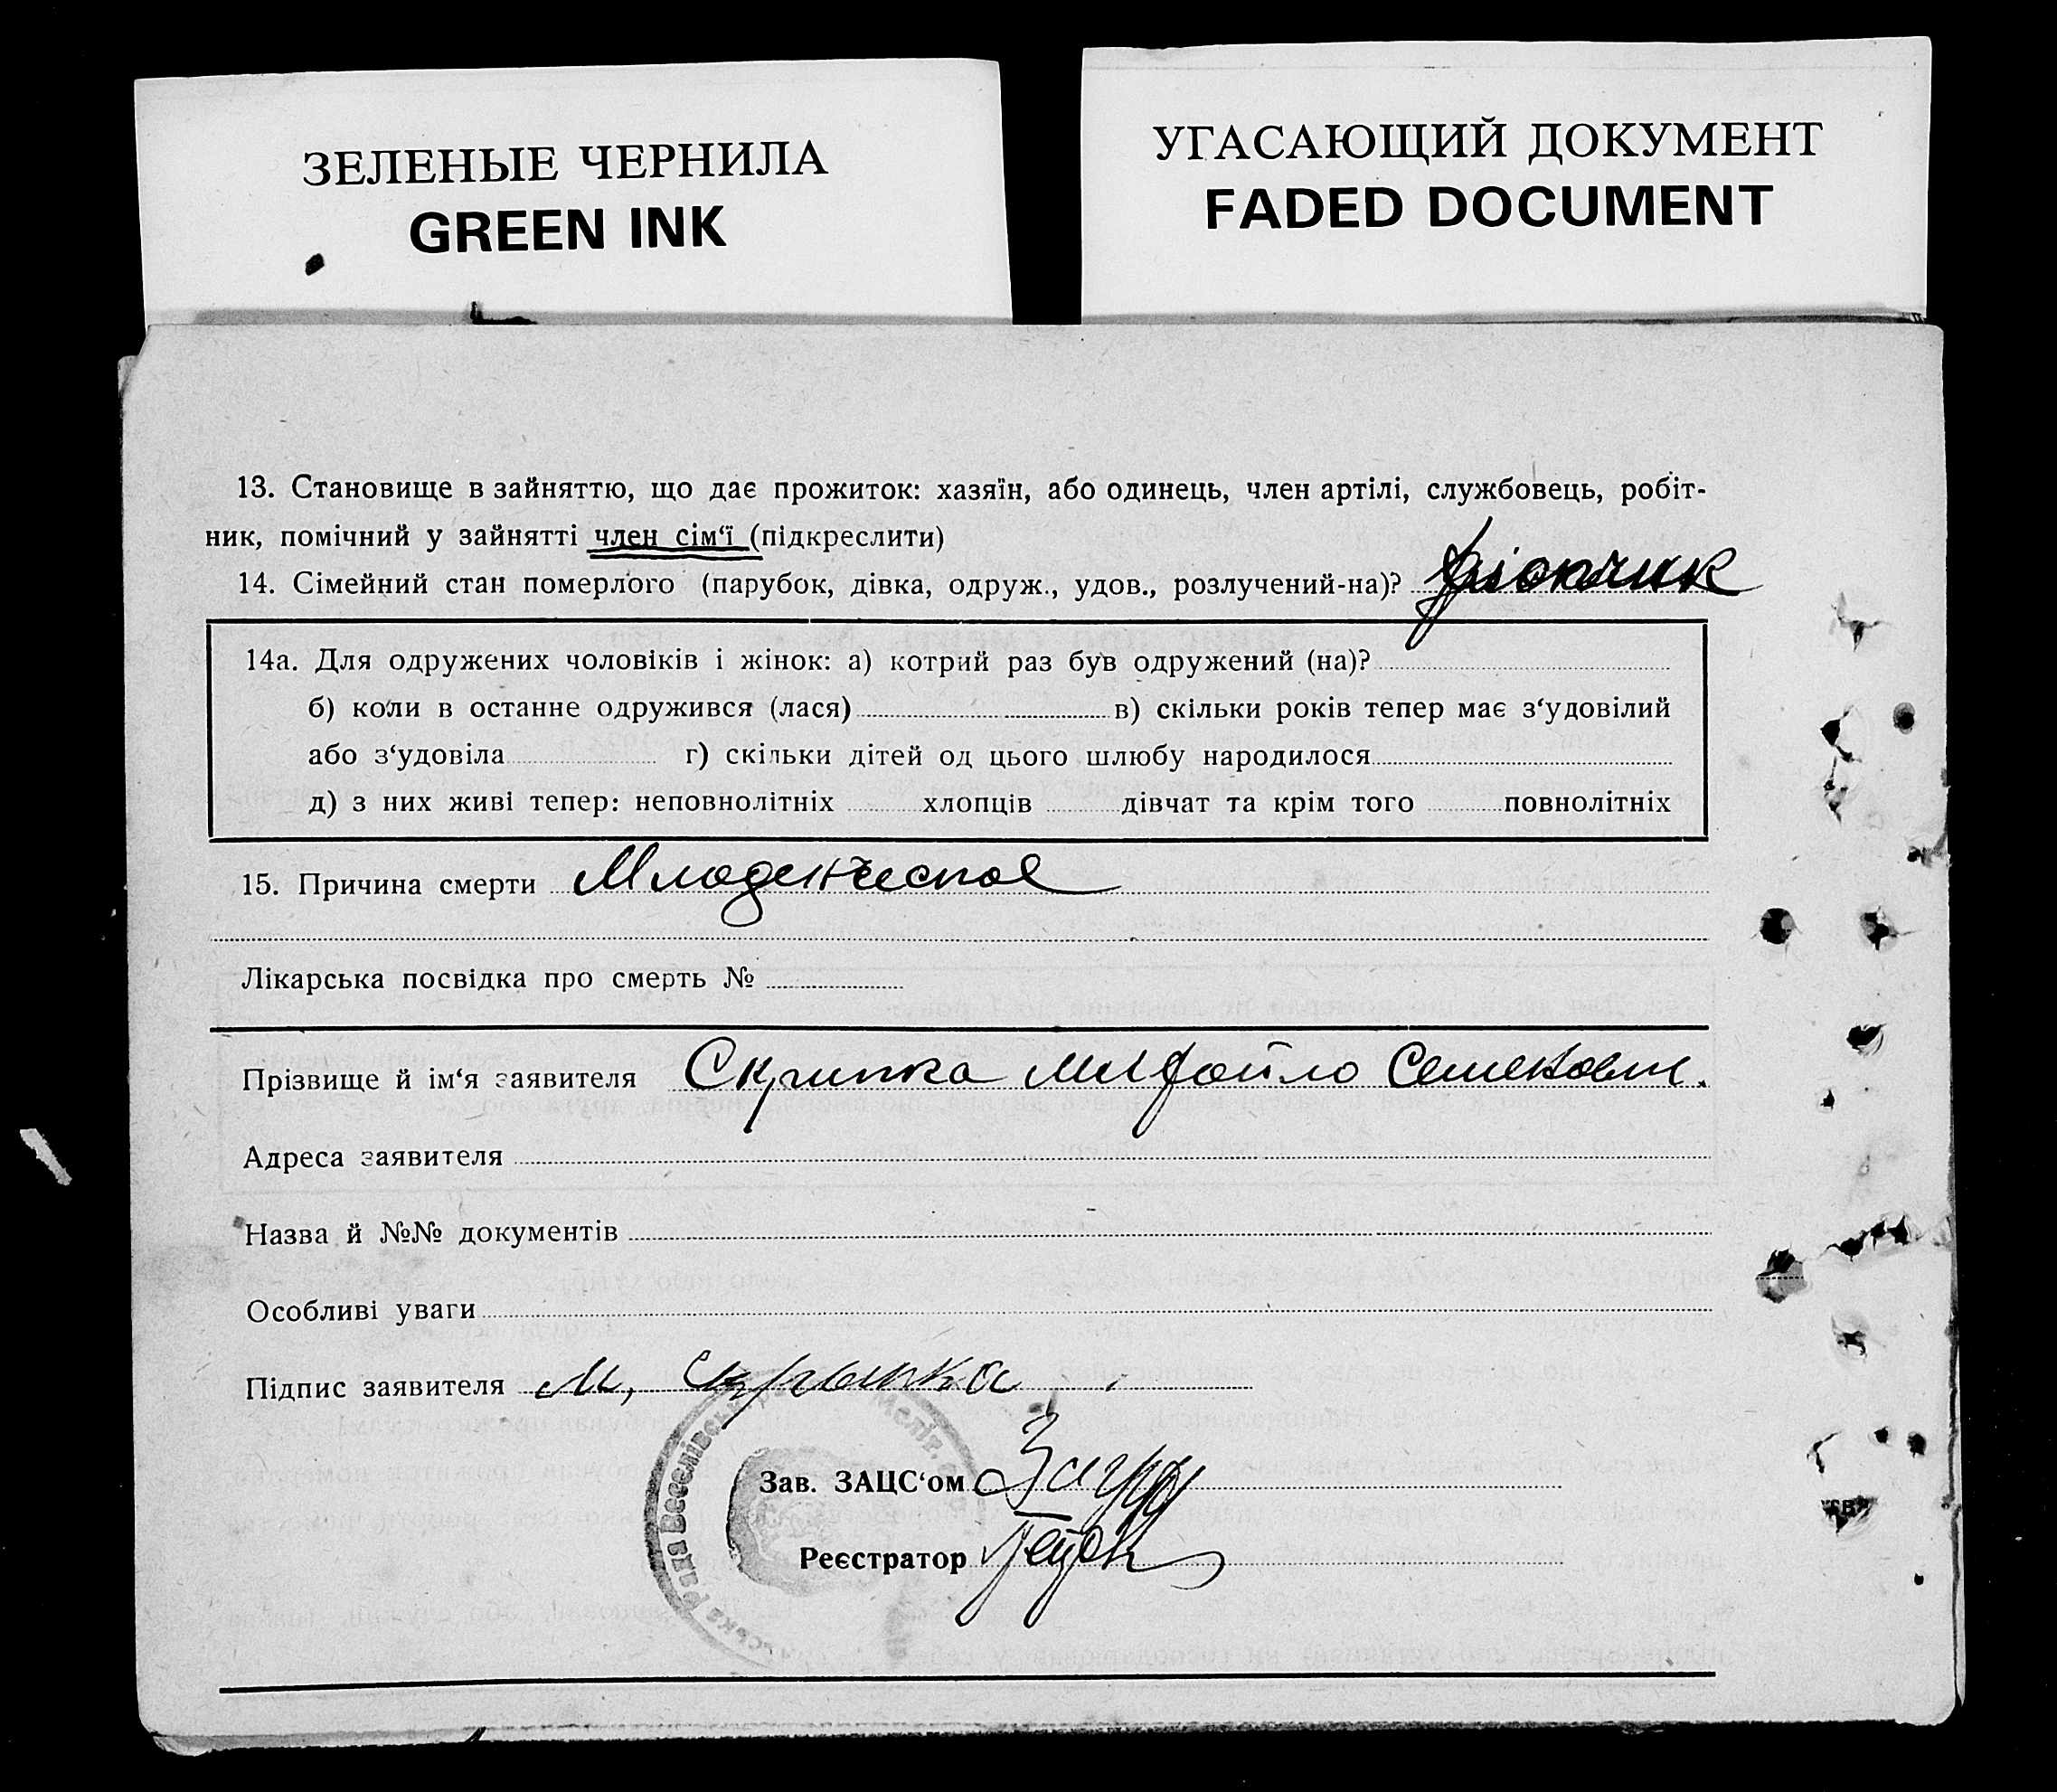 ЗЕЛЕНЫЕ ЧЕРНИЛА
GREEN INK
УГАСАЮЩИЙ ДОКУМЕНТ
FADED DOCUMENT
13. Становище в зайняттю, що дає прожиток: хазяїн, або одинець, член артілі, службовець, робіт-
ник, помічний у зайнятті член сім‘ї (підкреслити)
14. Сімейний стан померлого (парубок, дівка, одруж., удов., розлучений-на)?
14а. Для одружених чоловіків і жінок: а) котрий раз був одружений (на)?
б) коли в останне одружився (лася) в) скільки років тепер має з‘удовілий
або з‘удовіла г) скільки дітей од цього шлюбу народилося
д) з них живі тепер: неповнолітніх хлопців дівчат та крім того повнолітніх
15. Причина смерти Младенческое
Лікарська посвідка про смерть №
Прізвище й ім‘я заявителя Скрипка Михайло Семенович.
Адреса заявителя
Назва й №№ документів
Особливі уваги
Підпис заявителя М, Скрыпка
Зав. ЗАЦС‘ом
Реєстратор